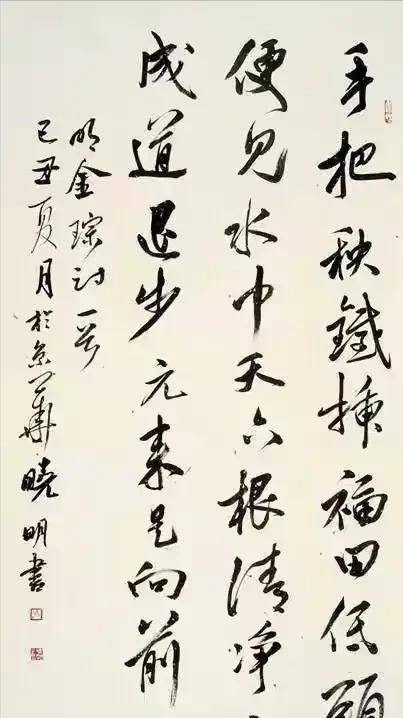 手把秧插福田低頭
便見水中天六根清淨
成道退步元來是向前
明金琮詩一首
己丑夏月於京華曉明書